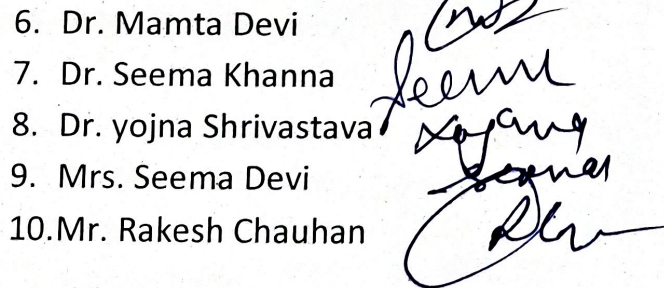 6. Dr. Mamta Devi
7. Dr. Seema Khanna Seema
8. Dr. yojna Shrivastava
9. Mrs. Seema Devi
10.Mr. Rakesh Chauhan